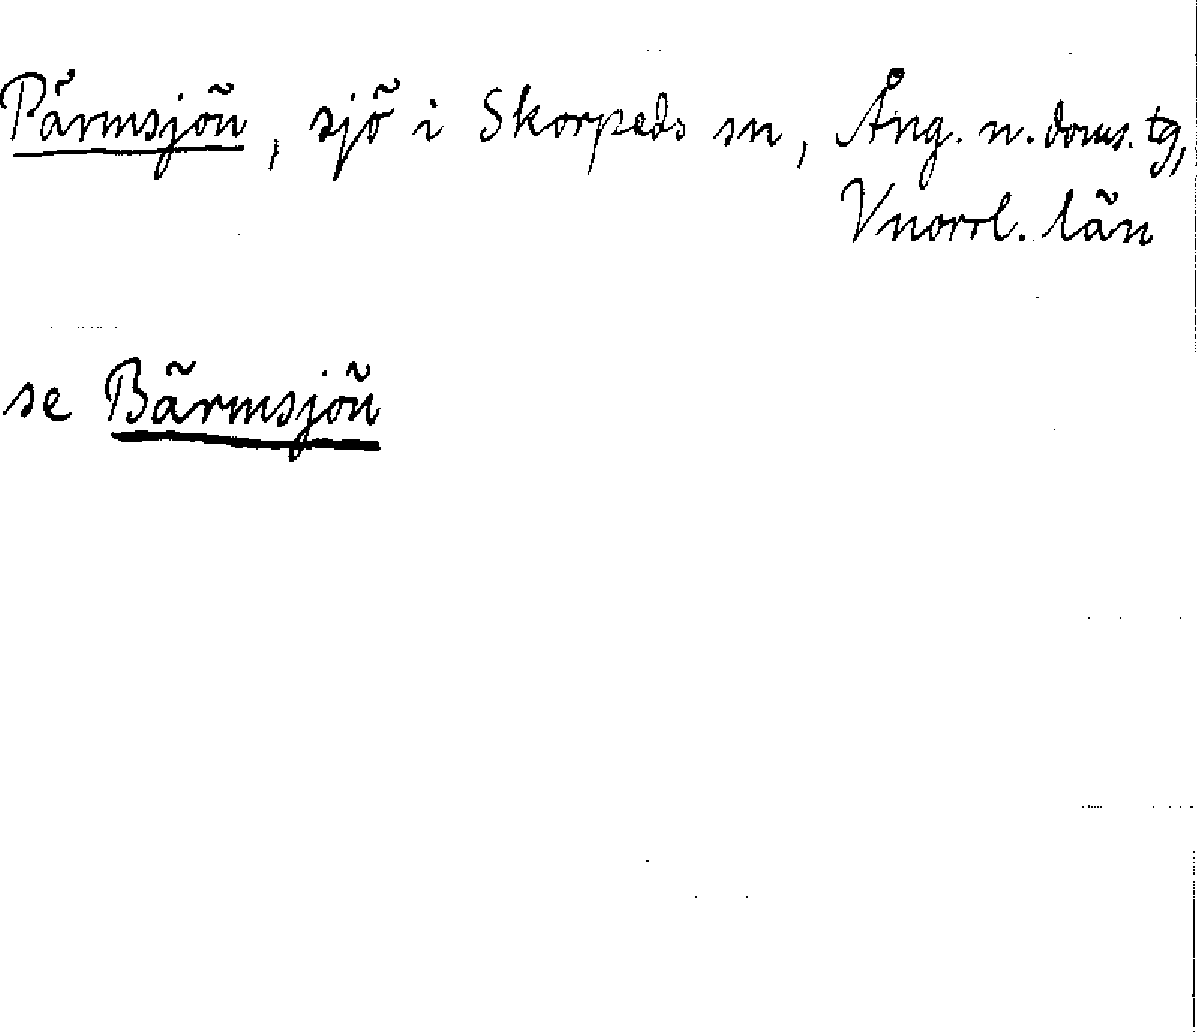 Pärmsjön, sjö i Skorpeds sn, Ång. n. doms. tg,
Vnorrl. län
se Bärmsjön